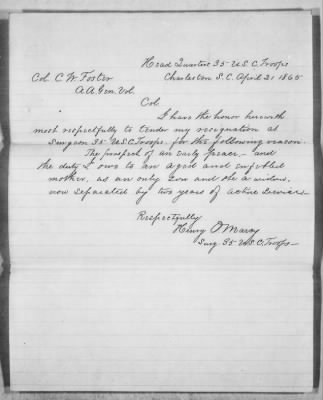 Head Quarters 35 U.S.C. Troops
Charleston S.C. April 21 1865
Col C. W. Foster
A.A. Gen. Vol.
Col.
I have the honor herewith
most respectfully to tender my resignation as
Surgeon 35th U.S.C. Troops. for the following reason.
The prospect of an early peace,- and
the duty I owe to an aged and enfeebled
mother, as an only son and she a widow,
now separated by two years of active service.
Respectfully
Henry O. Marcy
Surg 35 U.S.C. Troops